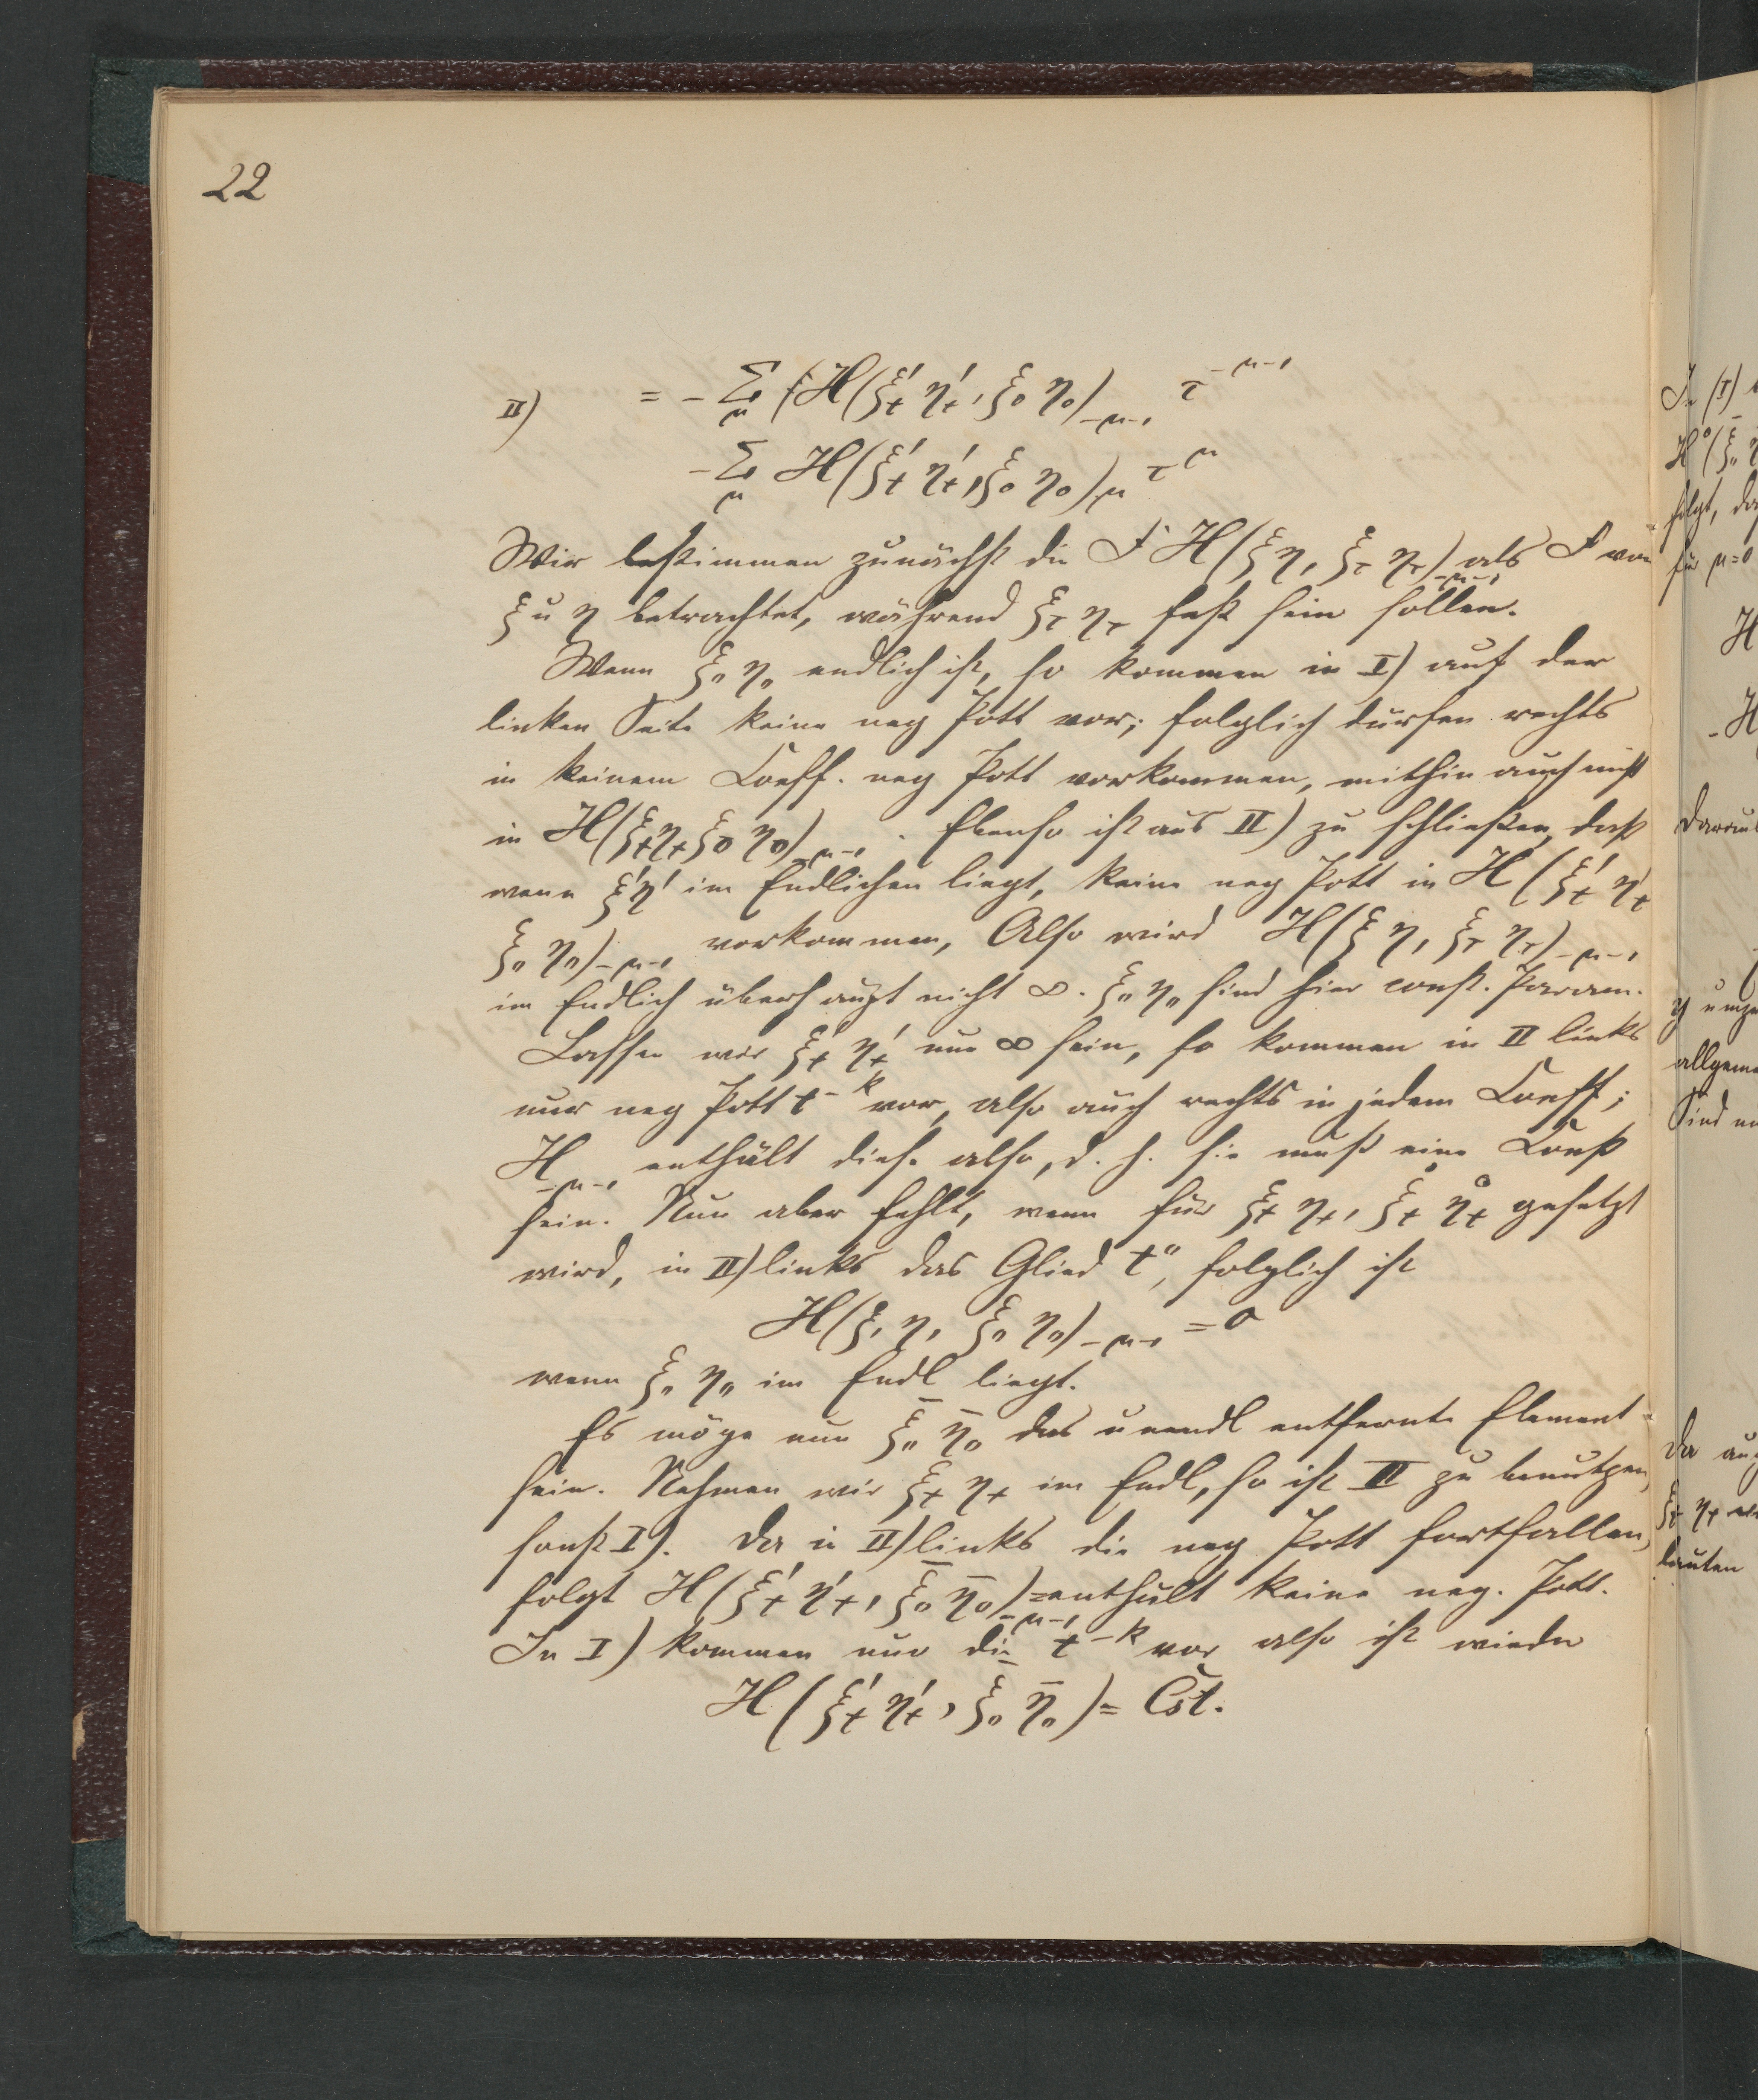 22
II) = - Σ_μ H(ξ'_t η'_t, ξ_0 η_0)_{-μ-1} τ^{-μ-1}
- Σ_μ H(ξ'_t η'_t, ξ_0 η_0)_μ τ^μ
Wir bestimmen zunächst die F H(ξ η, ξ_τ η_τ)_{-μ-1} als F von
ξ u η betrachtet, während ξ_τ η_τ fest sein sollen.
Wenn ξ_0 η_0 endlich ist, so kommen in I) auf der
linken Seite keine neg Pott vor; folglich dürfen rechts
in keinem Coeff. neg Pott vorkommen, mithin auch nicht
in H(ξ_t η_t ξ_0 η_0)_{-μ-1}. Ebenso ist aus II) zu schließen, daß
wenn ξ'η' im Endlichen liegt, keine neg Pott in H(ξ'_t η'_t
ξ_0 η_0)_{-μ-1} vorkommen, Also wird H(ξ η, ξ_τ η_τ)_{-μ-1}
im Endlich überhaupt nicht ∞. ξ_0 η_0 sind hier const. Param.
Lassen wir ξ'_t η'_t nun ∞ sein, so kommen in II links
nur neg Pott t^{-k} vor, also auch rechts in jedem Coeff;
H_{-μ-1} enthält diese also, d. h. sie muß eine Const
sein. Nun aber fehlt, wenn für ξ_t η_t, ξ°_t η°_t gesetzt
wird, in II) links das Glied t^0, folglich ist
H(ξ, η, ξ_0 η_0)_{-μ-1} = 0
wenn ξ_0 η_0 im Endl liegt.
Es möge nun ξ̄_0 η̄_0 das unendl entfernte Element
sein. Nehmen wir ξ_t η_t im Endl, so ist II zu benutzen,
sonst I). Da in II) links die neg Pott fortfallen,
folgt H(ξ'_t η'_t, ξ̄_0 η̄_0)_{-μ-1} enthält keine neg. Pott.
In I) kommen nur die t^{-k} vor also ist wieder
H(ξ'_t η'_t, ξ̄_0 η̄_0) = Cst.
In (I)
folgt, da
für μ=0
H
-H
Daraus
allgeme
Sind
Da
lauten